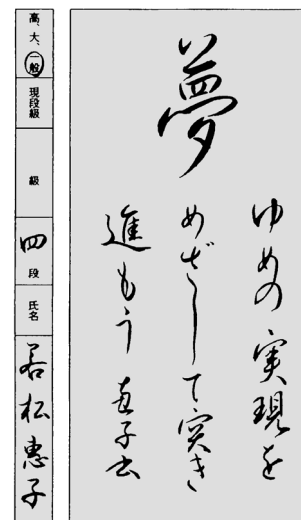 夢
ゆめの実現を
めざして突き
進もう 恵子書
高、大、一般
現段級
級
四段
氏名
若松恵子